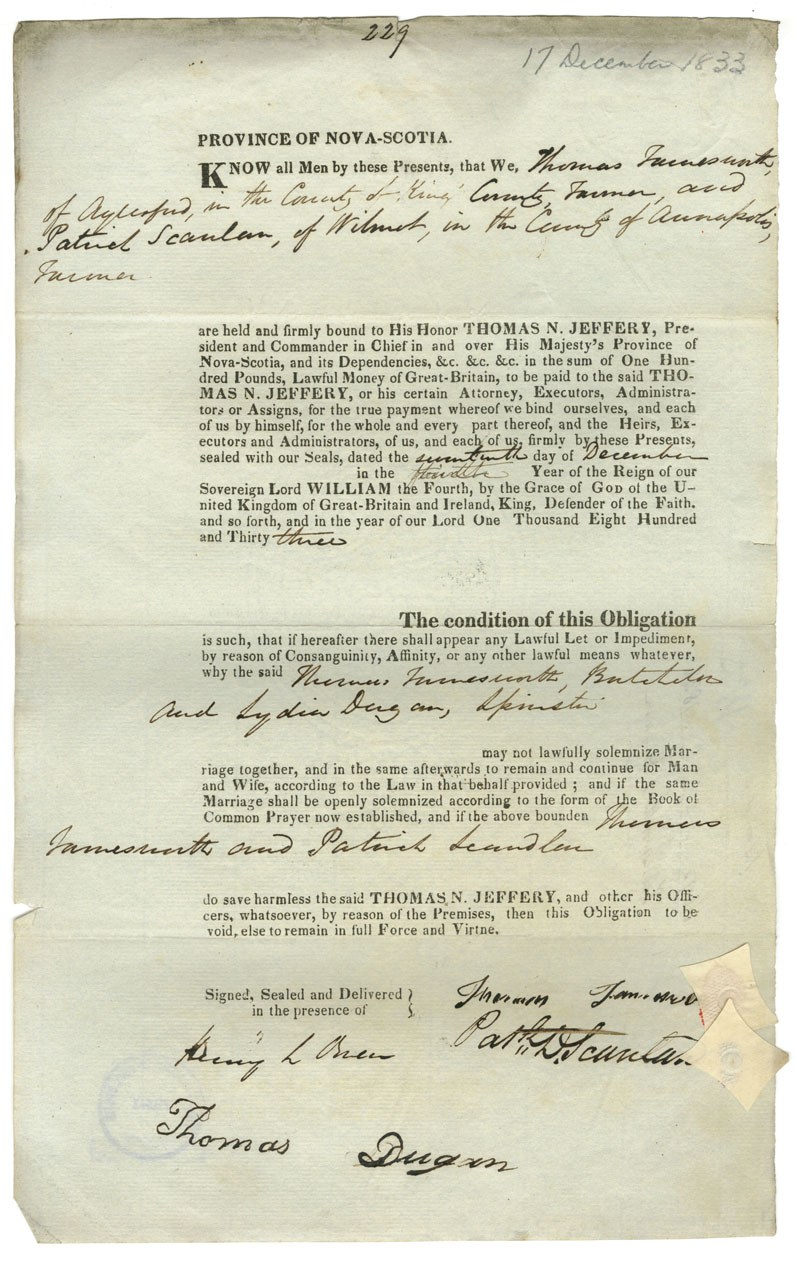 229
17 December 1833
PROVINCE OF NOVA-SCOTIA.
KNOW all Men by these Presents, that We, Thomas Farnesworth,
of Aylesford, in the County of King's County, Farmer, and
Patrick Scanlan, of Wilmot, in the County of Annapolis,
Farmer
are held and firmly bound to His Honor THOMAS N. JEFFERY, Pre-
sident and Commander in Chief in and over His Majesty's Province of
Nova-Scotia, and its Dependencies, &c. &c. &c. in the sum of One Hun-
dred Pounds, Lawful Money of Great-Britain, to be paid to the said THO-
MAS N. JEFFERY, or his certain Attorney, Executors, Administra-
tors or Assigns, for the true payment whereof we bind ourselves, and each
of us by himself, for the whole and every part thereof, and the Heirs, Ex-
ecutors and Administrators, of us, and each of us, firmly by these Presents,
sealed with our Seals, dated the seventeenth day of December
in the Year of the Reign of our
Sovereign Lord WILLIAM the Fourth, by the Grace of GOD of the U-
nited Kingdom of Great-Britain and Ireland, King, Defender of the Faith.
and so forth, and in the year of our Lord One Thousand Eight Hundred
and Thirty three
The condition of this Obligation
is such, that if hereafter there shall appear any Lawful Let or Impediment,
by reason of Consanguinity, Affinity, or any other lawful means whatever,
why the said Thomas Farnesworth, Batchelor
and Lydia Dugan, Spinster
may not lawfully solemnize Mar-
riage together, and in the same afterwards to remain and continue for Man
and Wife, according to the Law in that behalf provided; and if the same
Marriage shall be openly solemnized according to the form of the Book of
Common Prayer now established, and if the above bounden Thomas
Farnesworth and Patrick Scandlan
do save harmless the said THOMAS N. JEFFERY, and other his Offi-
cers, whatsoever, by reason of the Premises, then this Obligation to be
void, else to remain in full Force and Virtne.
Signed, Sealed and Delivered
in the presence of
Thomas
Patk D. Scanlan
Henry L Owen
Thomas Dugan